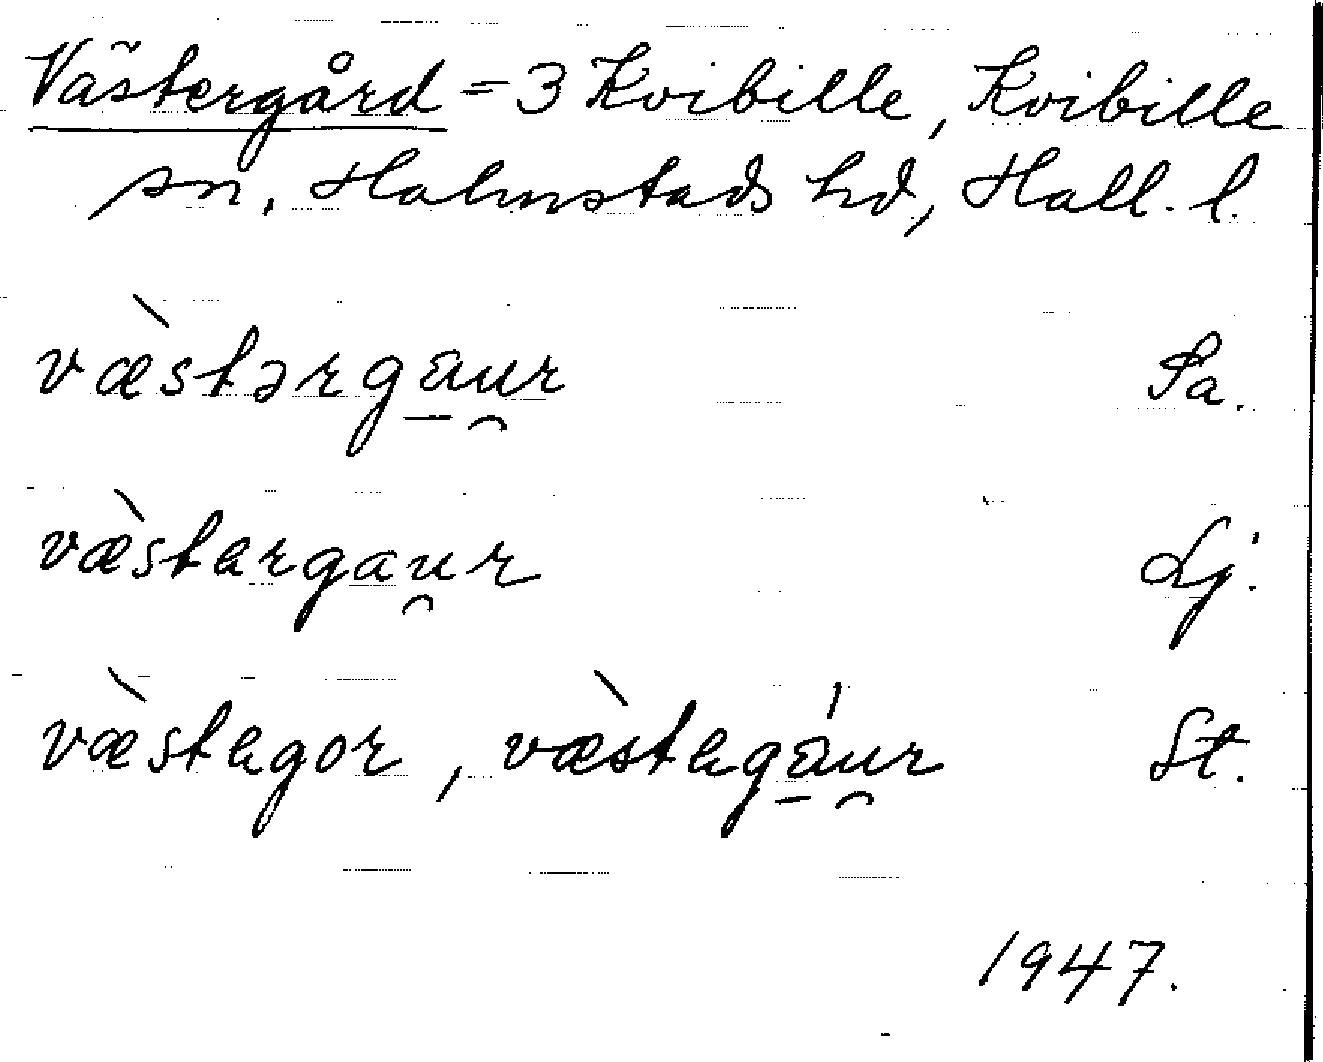 Västergård = 3 Kvibille, Kvibille
sn, Halmstads hd, Hall. l.
væ̀stərga̱u̯r Sa.
væ̀stargau̯r Lj.
væ̀stagor, væ̀stagá̱u̯r St.
1947.